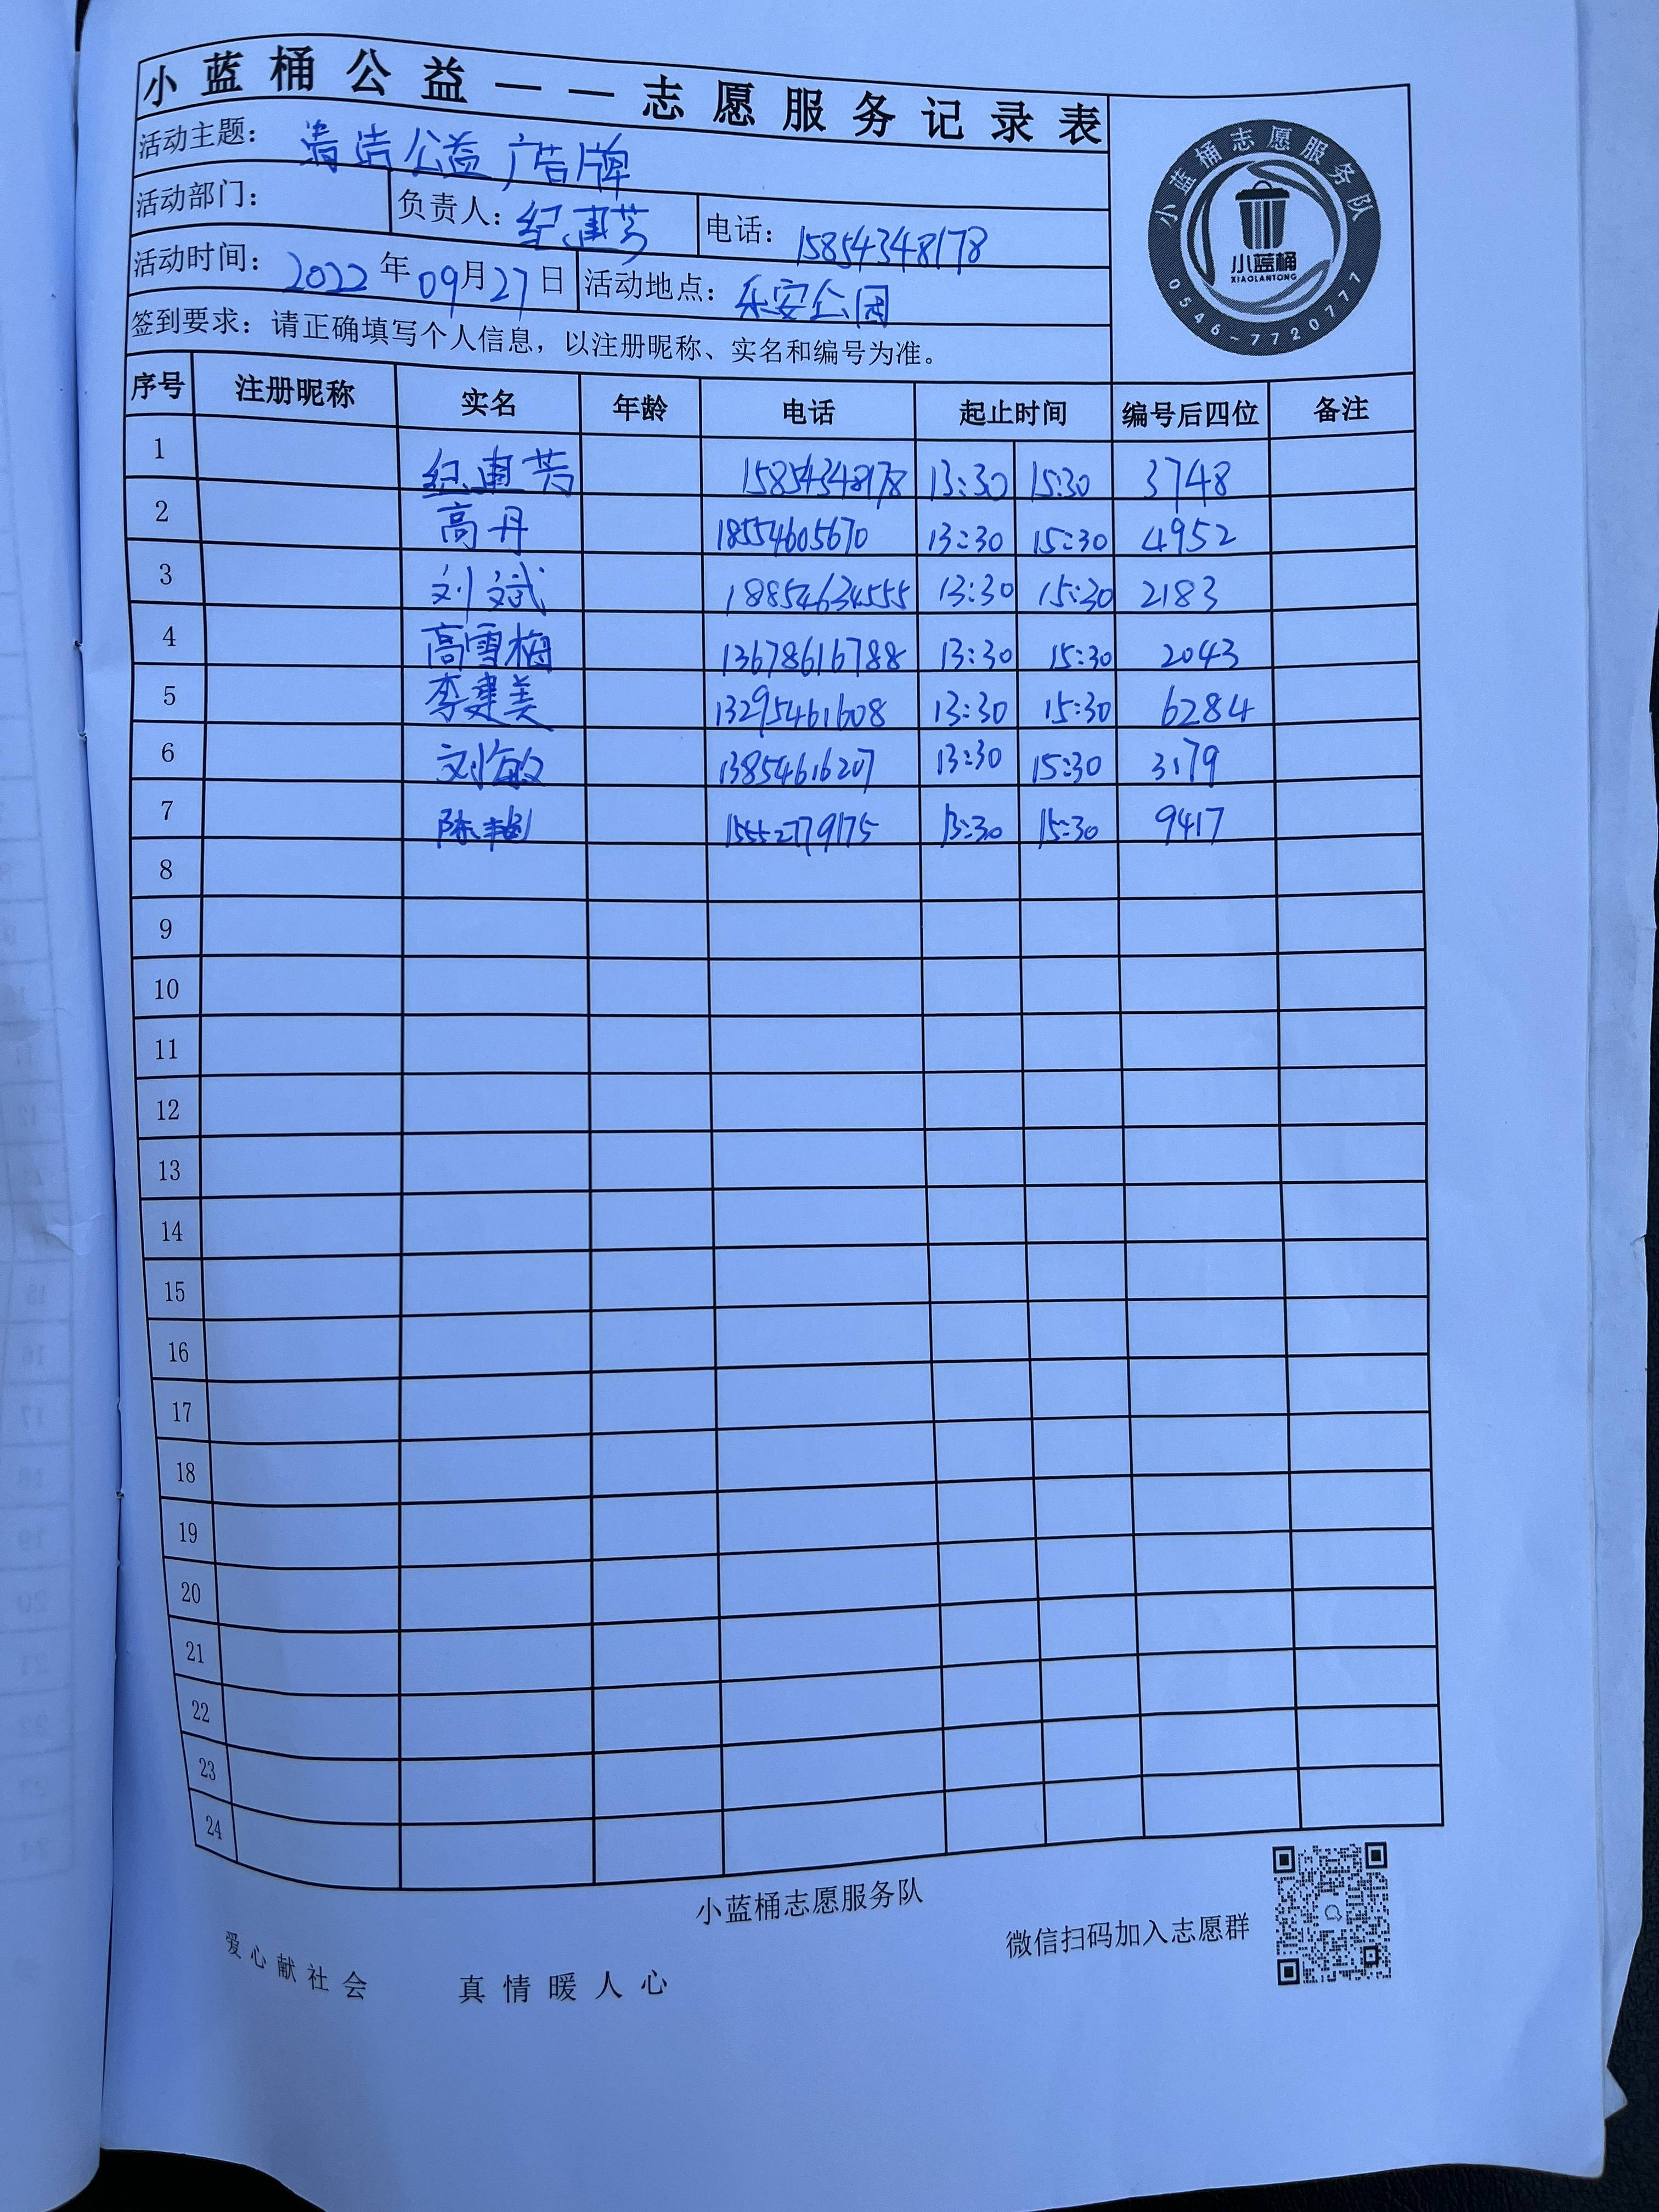 小蓝桶公益——志愿服务记录表
活动主题： 清洁公益广告牌
活动部门： 负责人：纪惠芳 电话：15854348178
活动时间：2022年09月27日 活动地点：乐安公园
签到要求：请正确填写个人信息，以注册昵称、实名和编号为准。
小蓝桶志愿服务队
小蓝桶
XIAOLANTONG
0546-7720777
序号 注册昵称 实名 年龄 电话 起止时间 编号后四位 备注
1 纪惠芳 15854348178 13:30 15:30 3748
2 高丹 18554605670 13:30 15:30 4952
3 刘斌 18854634555 13:30 15:30 2183
4 高雪梅 13678616788 13:30 15:30 2043
5 李建美 13295461608 13:30 15:30 6284
6 刘敏 13854616207 13:30 15:30 3179
7 陈 15552779175 13:30 15:30 9417
8
9
10
11
12
13
14
15
16
17
18
19
20
21
22
23
24
小蓝桶志愿服务队
微信扫码加入志愿群
爱心献社会 真情暖人心